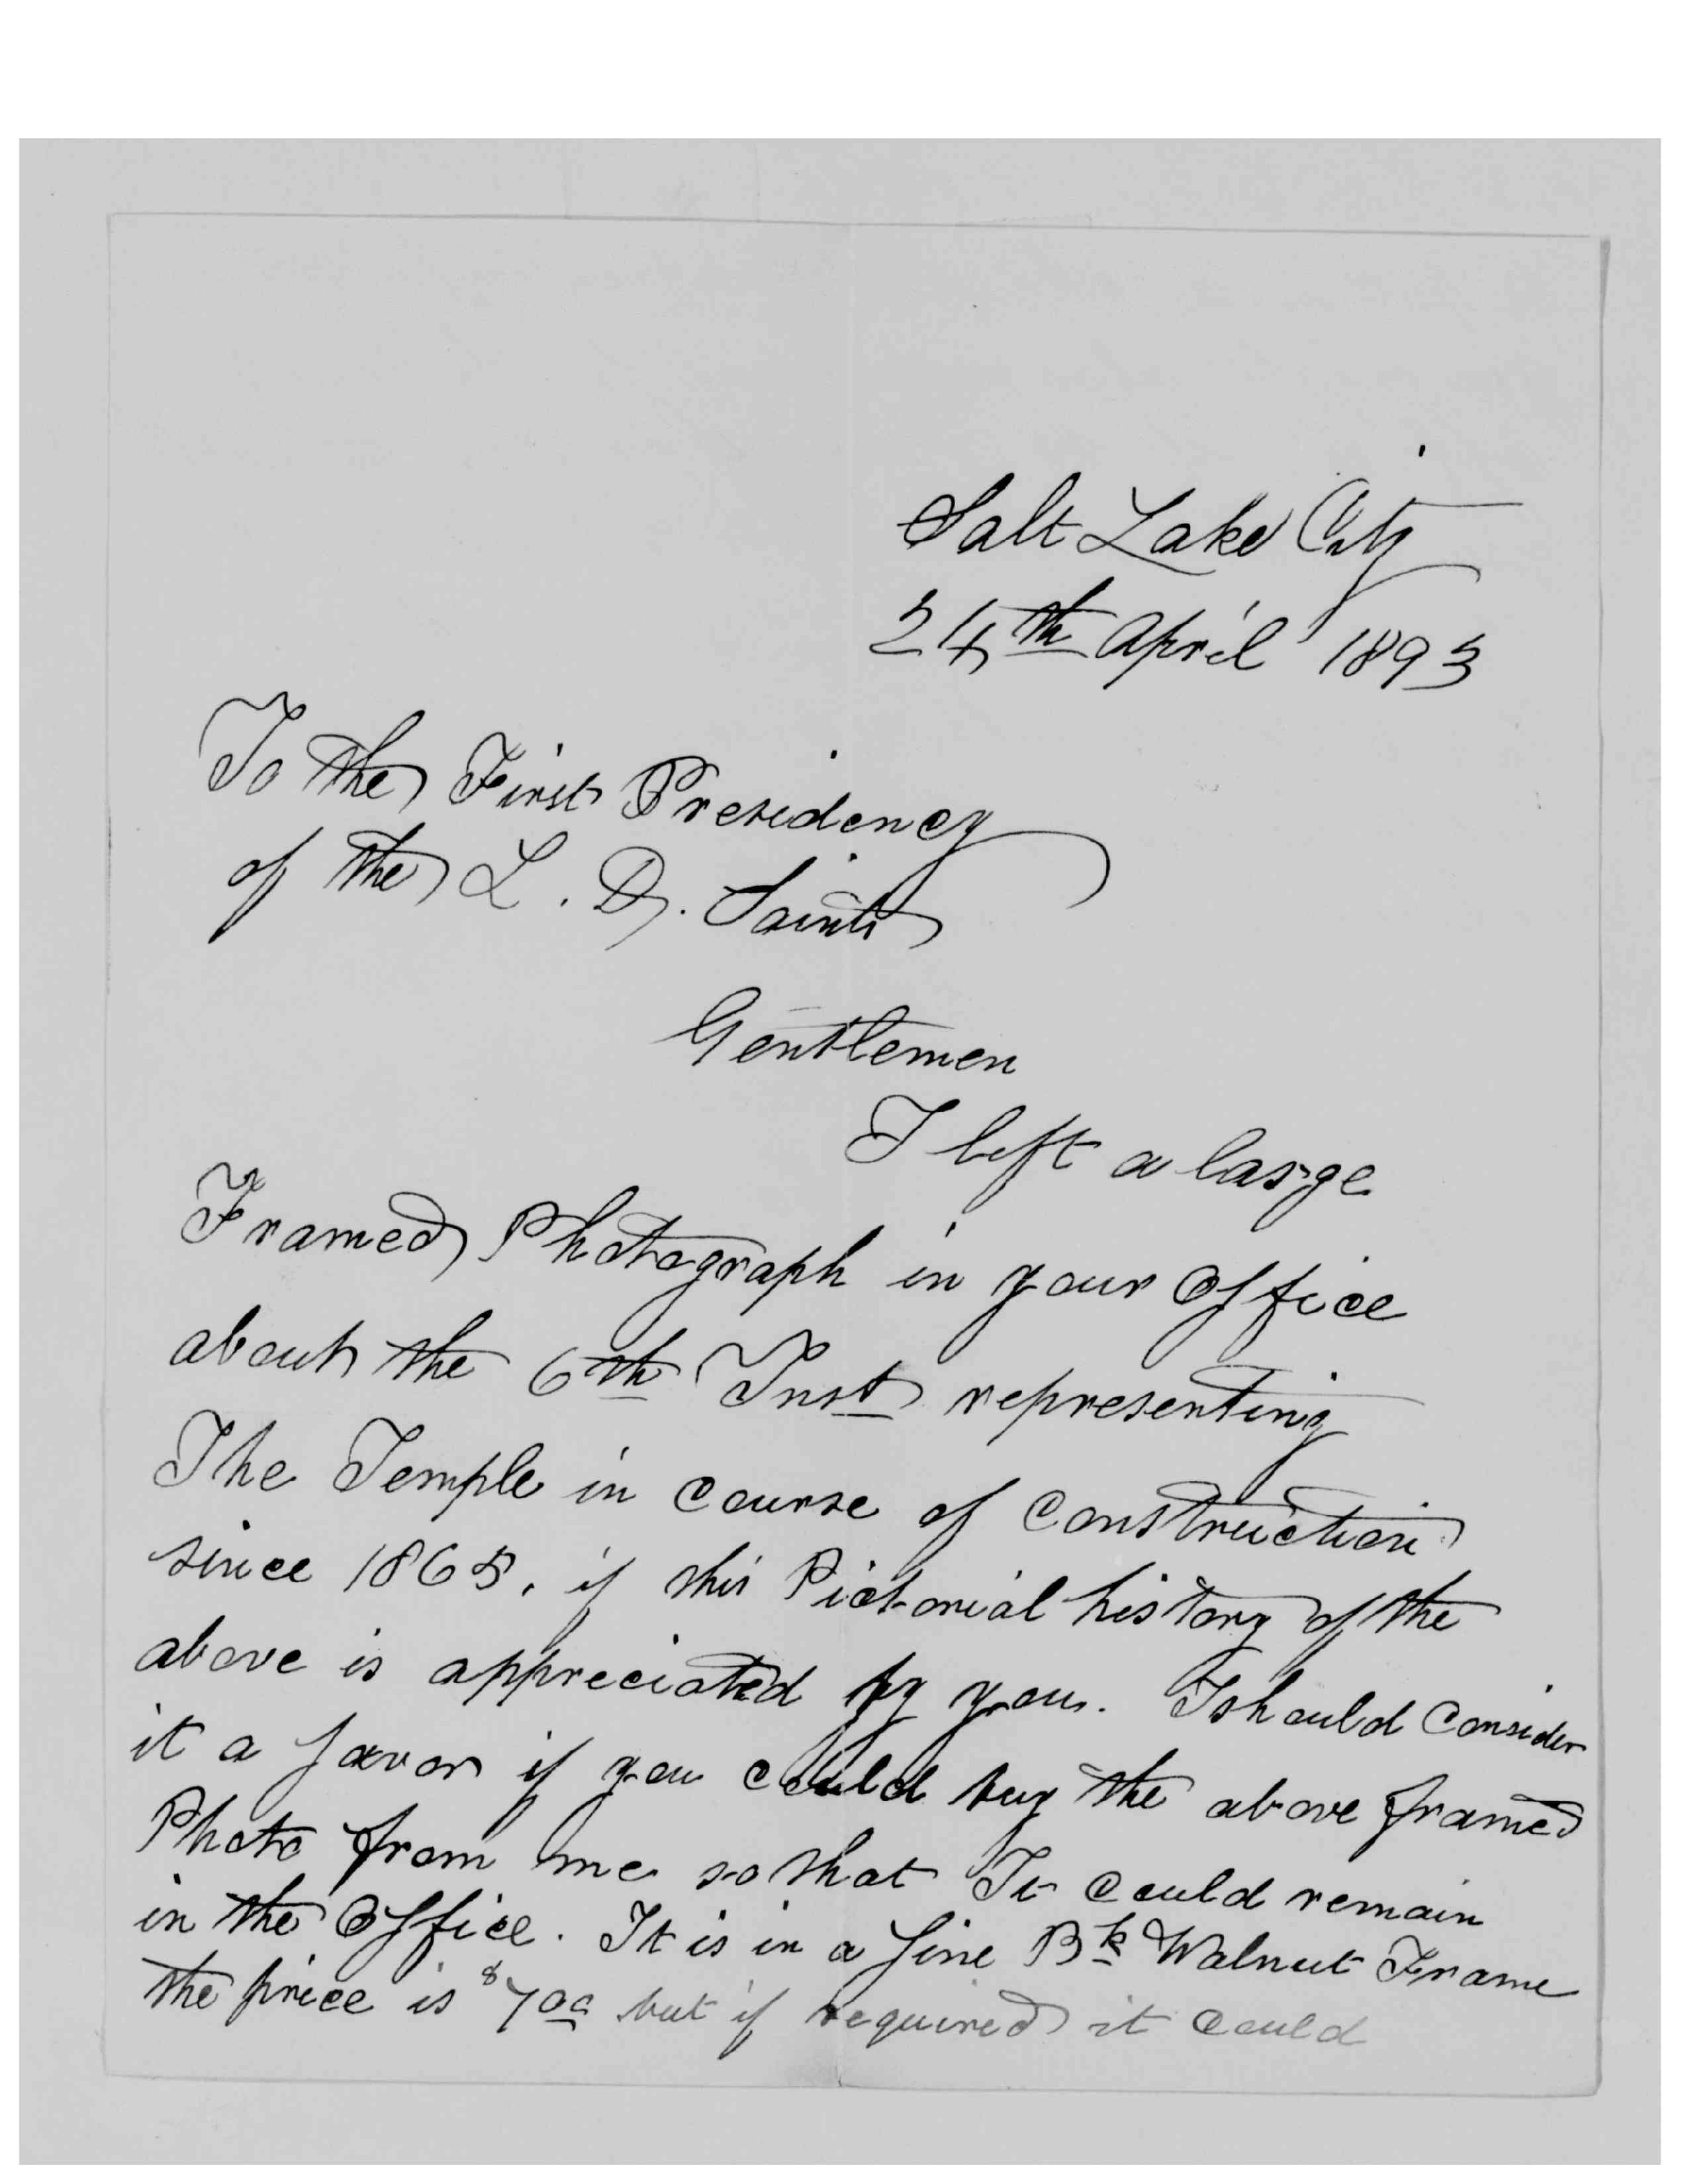 Salt Lake City
24th April 1893
To the First Presidency
of the L. D. Saints
Gentlemen
I left a large
Framed Photograph in your Office
about the 6th Inst representing
The Temple in course of Construction
since 1865. if this Pictorial history of the
above is appreciated by you. I should Consider
it a favor if you could buy the above framed
Photo from me so that It could remain
in the Office. It is in a fine Bk Walnut Frame
the price is $7.00 but if required it could